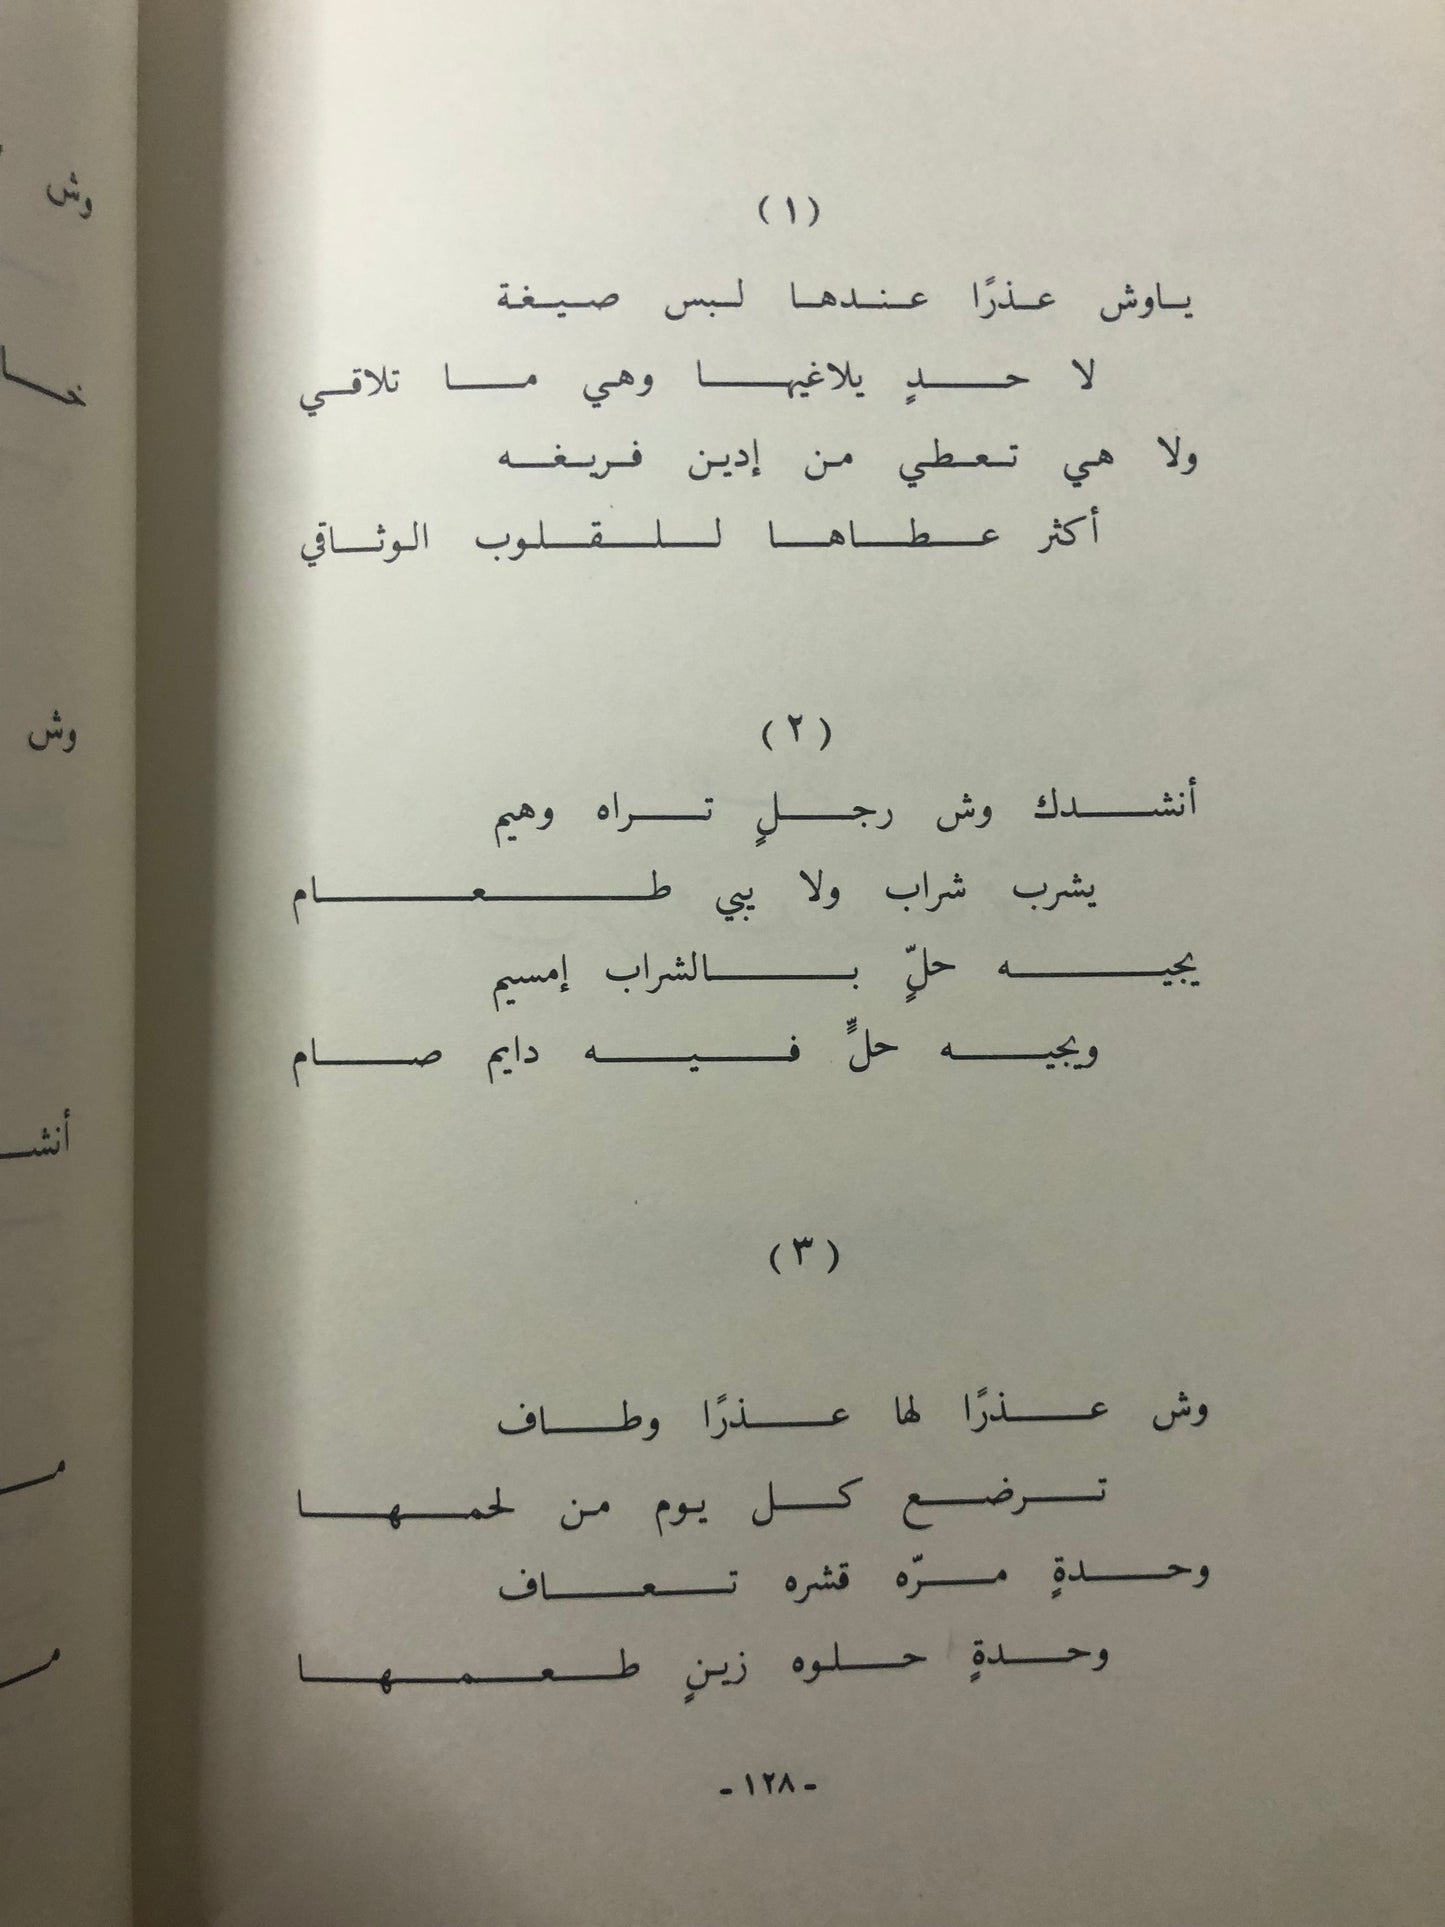 (١)
ياوش عذرًا عندها لبس صيغة
لا حدٍ يلاغيها وهي ما تلاقي
ولا هي تعطي من إدين فريغه
أكثر عطاها للقلوب الوثاقي
(٢)
أنشدك وش رجلٍ تراه وهيم
يشرب شراب ولا يبي طعام
يجيه حلٍّ بالشراب إمسيم
ويجيه حلٍّ فيه دايم صام
(٣)
وش عذرًا لها عذرًا وطاف
ترضع كل يوم من لحمها
وحدةٍ مرّه قشره تعاف
وحدةٍ حلوه زينٍ طعمها
- ١٢٨ -
وش
وش